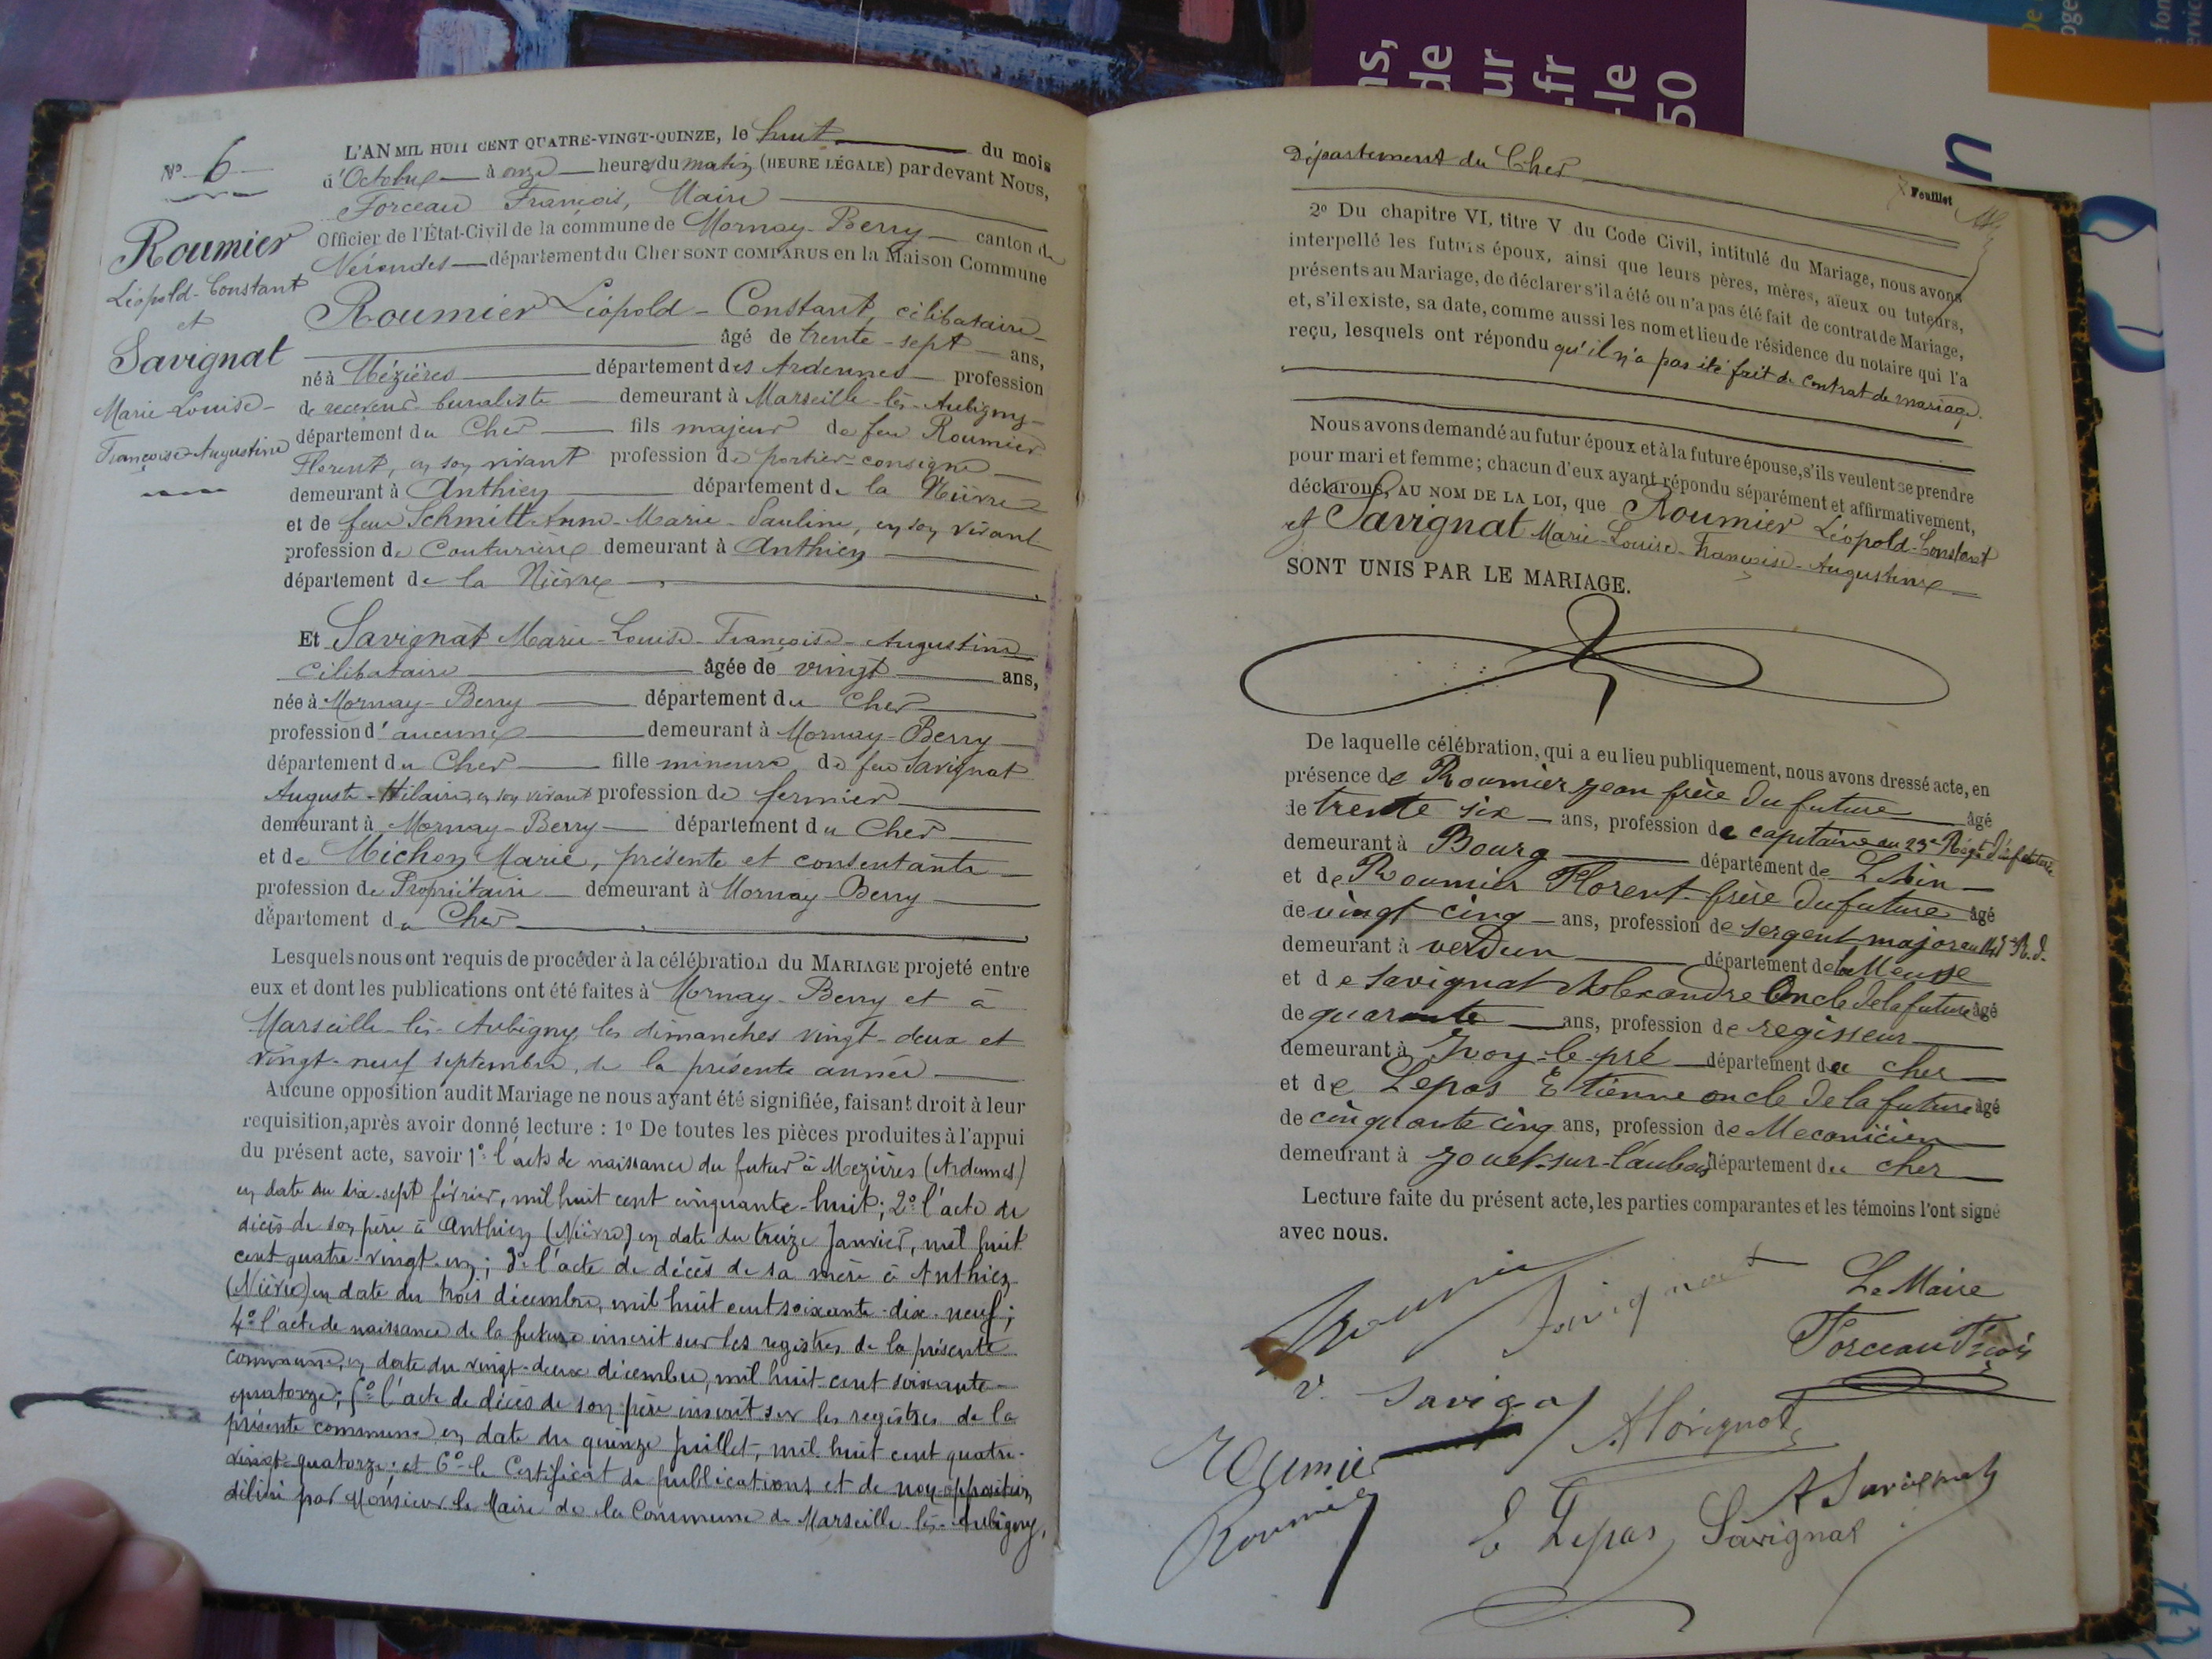 ns,
de
ur
.fr
-le
50
n
No 6
Roumier
Léopold-Constant
et
Savignat
Marie-Louise-
Françoise-Augustine
L'AN MIL HUIT CENT QUATRE-VINGT-QUINZE, le huit du mois
d'Octobre à onze heures du matin (HEURE LÉGALE) par devant Nous,
Forceau François, Maire
Officier de l'État-Civil de la commune de Mornay-Berry canton de
Nérondes département du Cher SONT COMPARUS en la Maison Commune
Roumier Léopold-Constant, célibataire
âgé de trente-sept ans,
né à Mézières département des Ardennes profession
de receveur-buraliste demeurant à Marseille-lès-Aubigny
département du Cher fils majeur de feu Roumier
Florent, en son vivant profession de portier-consigne
demeurant à Anthien département de la Nièvre
et de feue Schmitt Anne-Marie-Pauline, en son vivant
profession de Couturière demeurant à Anthien
département de la Nièvre
Et Savignat Marie-Louise-Françoise-Augustine
célibataire âgée de vingt ans,
née à Mornay-Berry département du Cher
profession d'aucune demeurant à Mornay-Berry
département du Cher fille mineure de feu Savignat
Auguste-Hilaire, en son vivant profession de fermier
demeurant à Mornay-Berry département du Cher
et de Michon Marie, présente et consentante
profession de Propriétaire demeurant à Mornay-Berry
département du Cher
Lesquels nous ont requis de procéder à la célébration du MARIAGE projeté entre
eux et dont les publications ont été faites à Mornay-Berry et à
Marseille-lès-Aubigny, les dimanches vingt-deux et
vingt-neuf septembre, de la présente année
Aucune opposition audit Mariage ne nous ayant été signifiée, faisant droit à leur
requisition, après avoir donné lecture : 1º De toutes les pièces produites à l'appui
du présent acte, savoir 1º l'acte de naissance du futur à Mezières (Ardennes)
en date du dix-sept février, mil huit cent cinquante-huit; 2º l'acte de
décès de son père à Anthien (Nièvre) en date du treize Janvier, mil huit
cent quatre-vingt-un; 3º l'acte de décès de sa mère à Anthien
(Nièvre) en date du trois décembre, mil huit cent soixante-dix-neuf;
4º l'acte de naissance de la future inscrit sur les registres de la présente
commune, en date du vingt-deux décembre, mil huit cent soixante-
quatorze; 5º l'acte de décès de son père inscrit sur les registres de la
présente commune en date du quinze juillet, mil huit cent quatre-
vingt-quatorze; et 6º le Certificat de publications et de non-opposition
délivré par Monsieur le Maire de la Commune de Marseille-lès-Aubigny,
Département du Cher
Feuillet
2º Du chapitre VI, titre V du Code Civil, intitulé du Mariage, nous avons
interpellé les futurs époux, ainsi que leurs pères, mères, aïeux ou tuteurs,
présents au Mariage, de déclarer s'il a été ou n'a pas été fait de contrat de Mariage,
et, s'il existe, sa date, comme aussi les nom et lieu de résidence du notaire qui l'a
reçu, lesquels ont répondu qu'il n'a pas été fait de contrat de mariage.
Nous avons demandé au futur époux et à la future épouse, s'ils veulent se prendre
pour mari et femme; chacun d'eux ayant répondu séparément et affirmativement,
déclarons, AU NOM DE LA LOI, que Roumier Léopold-Constant
et Savignat Marie-Louise-Françoise-Augustine
SONT UNIS PAR LE MARIAGE.
De laquelle célébration, qui a eu lieu publiquement, nous avons dressé acte, en
présence de Roumier Jean frère du future âgé
de trente six ans, profession de capitaine au 23e Régt d'infanterie
demeurant à Bourg département de L'Ain
et de Roumier Florent frère du future âgé
de vingt cinq ans, profession de sergent major au
demeurant à verdun département de la Meuse
et de Savignat Alexandre Oncle de la future âgé
de quarante ans, profession de regisseur
demeurant à Ivoy-le-pré département du cher
et de Lepas Etienne oncle de la future âgé
de cinquante cinq ans, profession de Mecanicien
demeurant à Jouet-sur-l'aubois département du cher
Lecture faite du présent acte, les parties comparantes et les témoins l'ont signé
avec nous.
Roumier Savignat Le Maire
Forceau Fçois
v. Savignat
Roumier
A Savignat
Roumier E Lepas Savignat